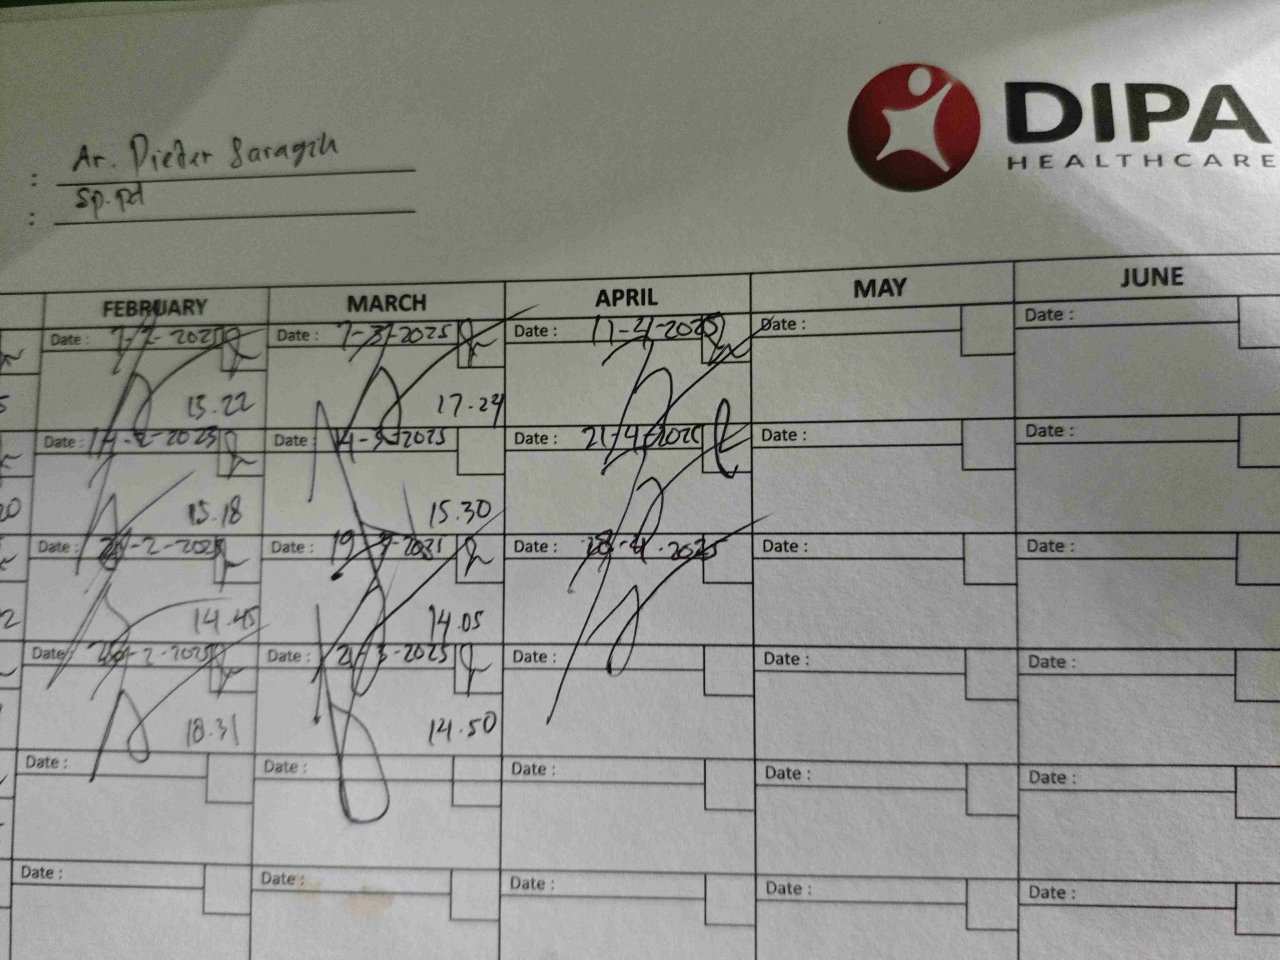 DIPA
HEALTHCARE
: Ar. Dieder Saragih
: Sp.pd
FEBRUARY MARCH APRIL MAY JUNE
Date : 7-2-2025 Date : 7-3-2025 Date : 11-4-2025 Date : Date :
15.22 17.24
Date : 14-2-2025 Date : 14-3-2025 Date : 21-4-2025 Date : Date :
15.18 15.30
Date : -2-2025 Date : 19-3-2025 Date : -4-2025 Date : Date :
14.45 14.05
Date : -2-2025 Date : 21-3-2025 Date : Date : Date :
18.31 14.50
Date : Date : Date : Date : Date :
Date : Date : Date : Date : Date :